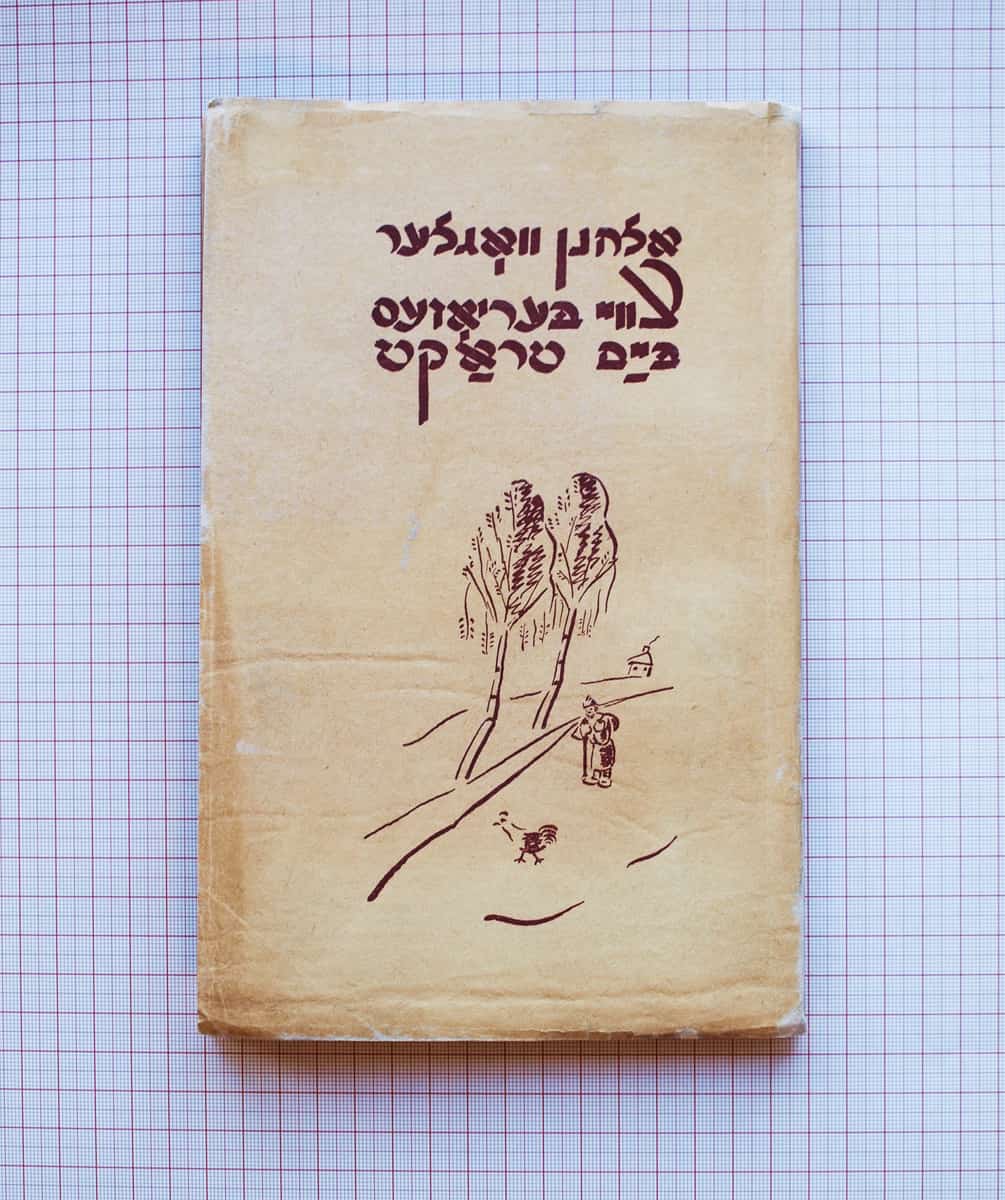 אלחנן וואָגלער
צוויי בעריאָזעס
בײַם טראַקט